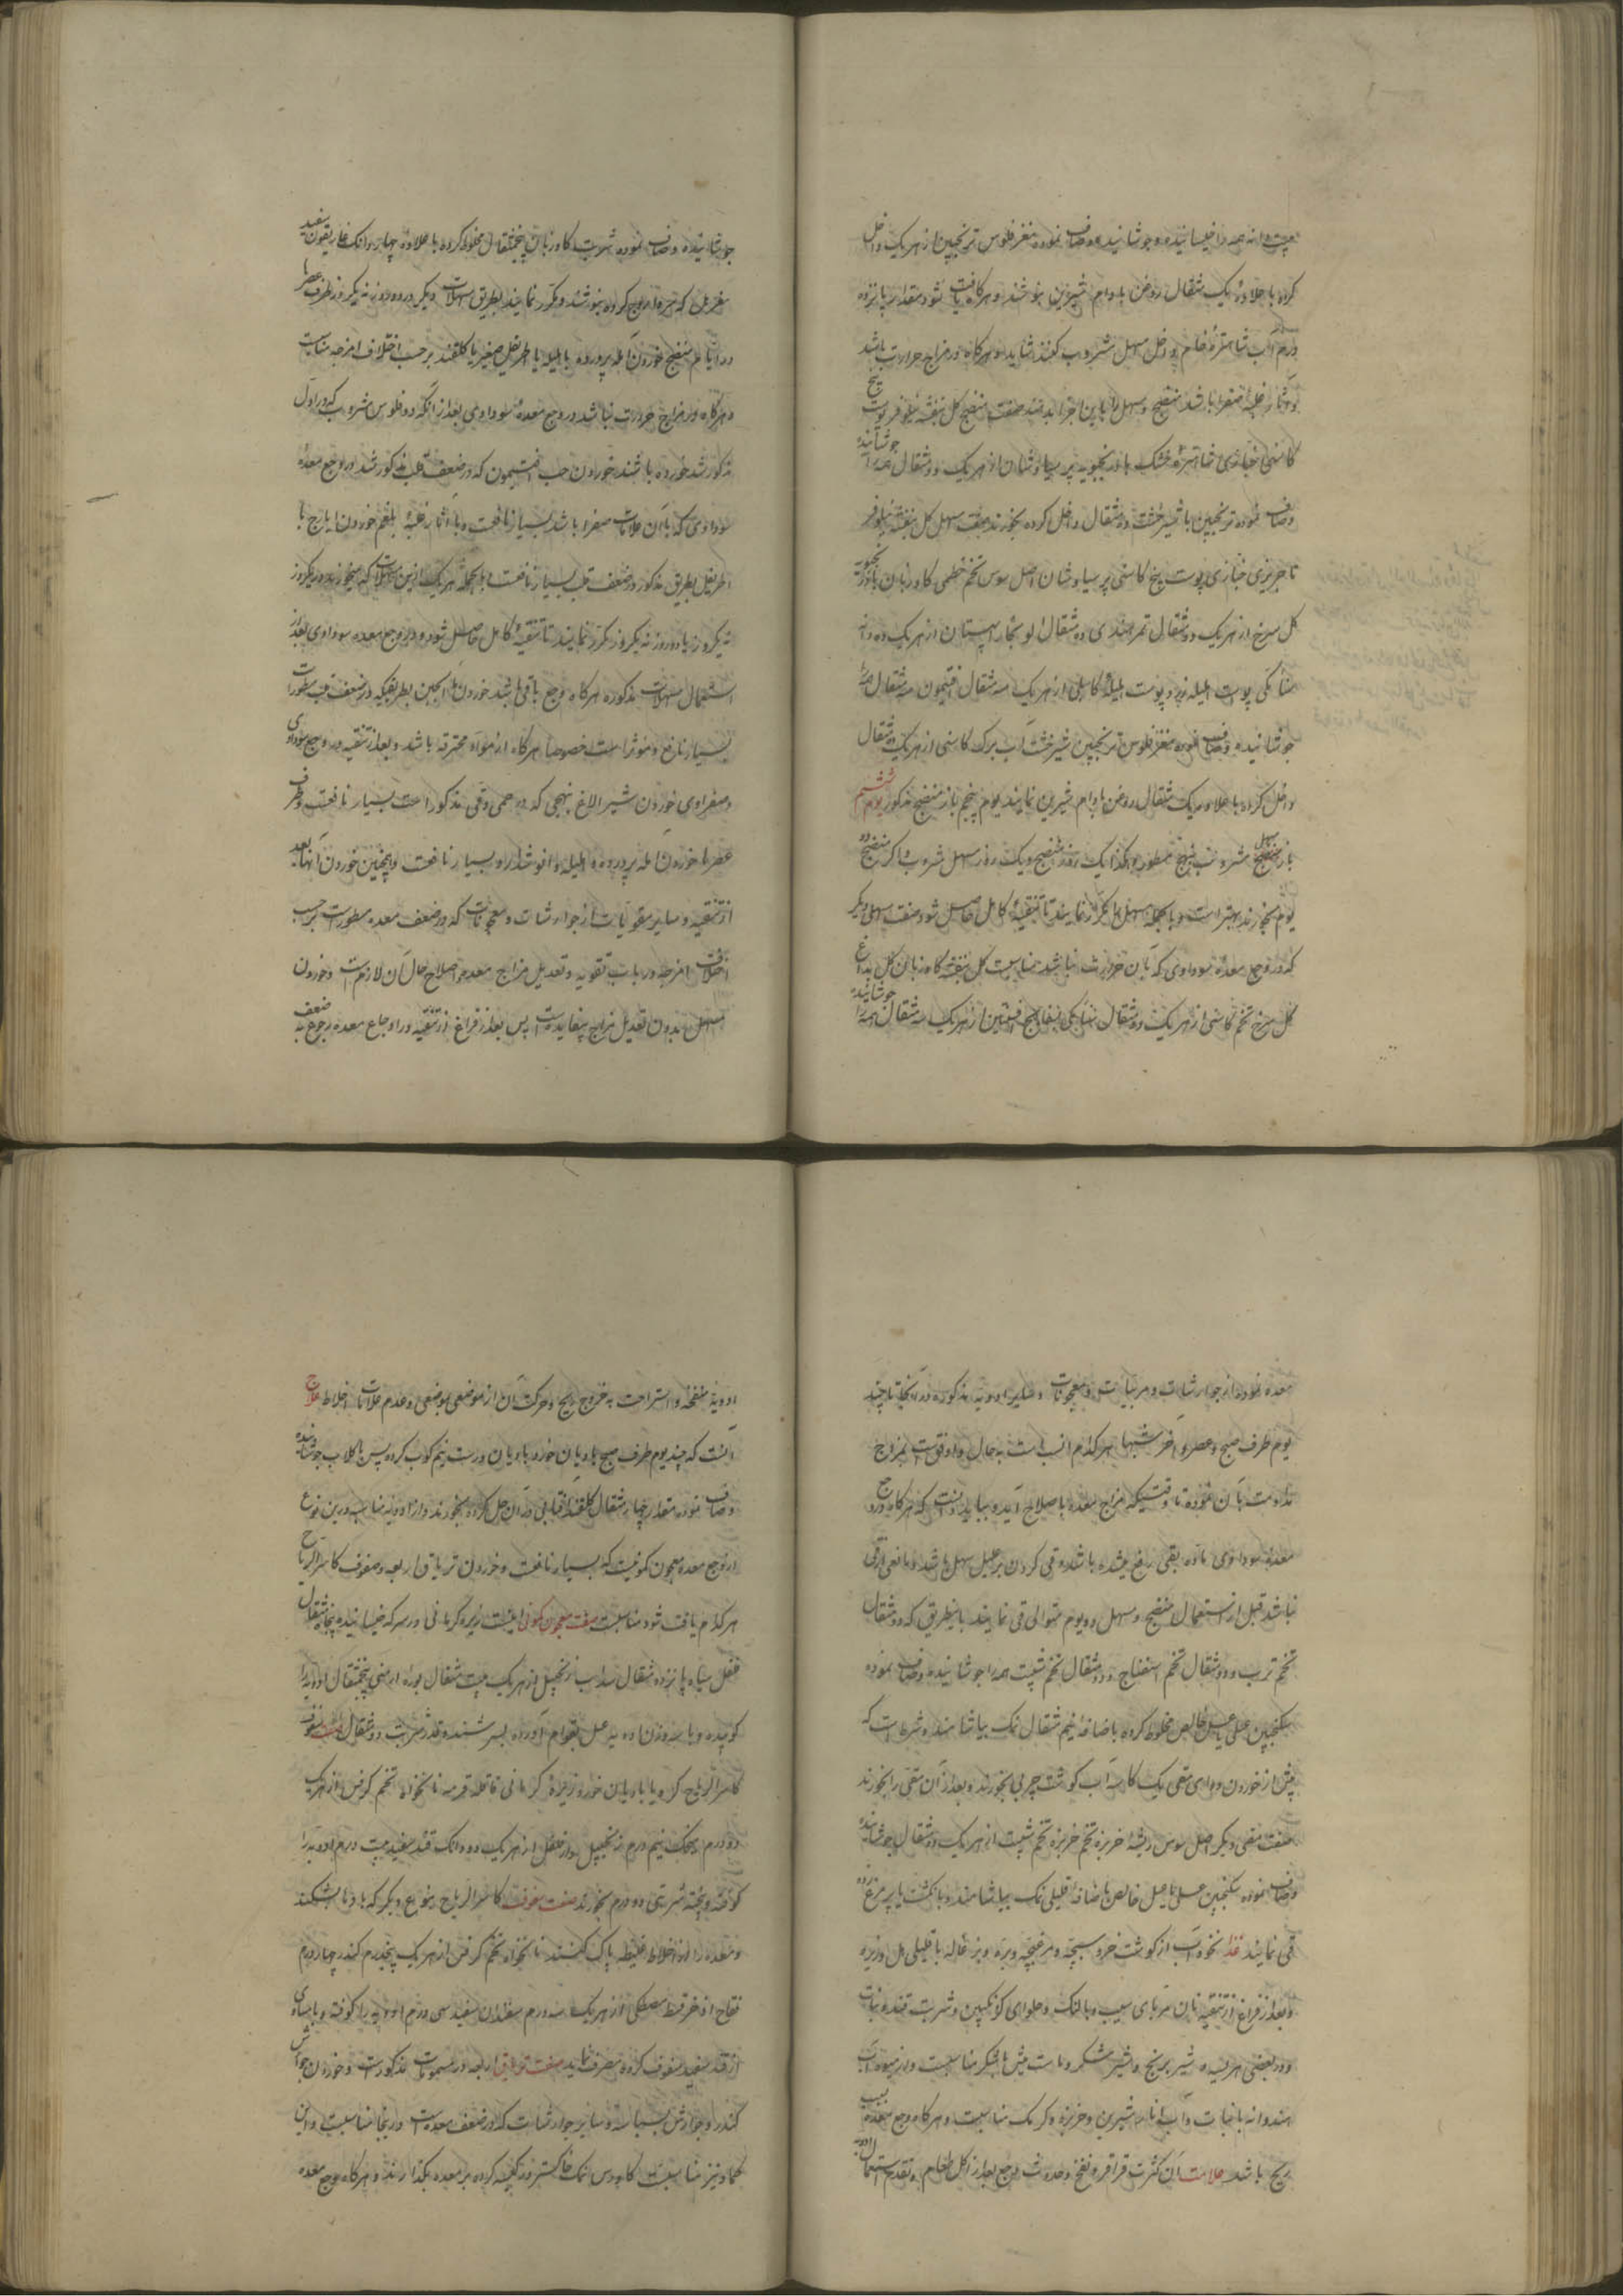 بیست دانه همه را خیسانیده و جوشانیده و صاف نموده مغز فلوس ترنجبین از هر یک داخل
کرده با علاوه یک مثقال روغن بادام شیرین بنوشند و هرگاه یافت شود مقدار پانزده
درم آب شاهتره خام داخل مسهل مشروب کنند شاید و هرگاه در مزاج حرارت باشد
و آثار غلبه صفرا باشد منضج و مسهل را باین اجزا بدهند صفت منضج گل بنفشه نیلوفر پوست بیخ
کاسنی خبازی شاهتره خشک بادرنجبویه پرسیاوشان از هر یک دو مثقال همه را جوشانیده
و صاف نموده ترنجبین با شیرخشت ده مثقال داخل کرده بخورند صفت مسهل گل بنفشه نیلوفر
تاجریزی خبازی پوست بیخ کاسنی پرسیاوشان اصل سوس تخم خطمی گاوزبان بادرنجبویه
گل سرخ از هر یک دو مثقال تمر هندی ده مثقال آلو بخارا سپستان از هر یک ده دانه
سنامکی پوست هلیله زرد پوست هلیله کابلی از هر یک سه مثقال افتیمون سه مثقال همه را
جوشانیده و صاف نموده مغز فلوس ترنجبین شیرخشت آب برگ کاسنی از هر یک ده مثقال
داخل کرده با علاوه یک مثقال روغن بادام شیرین نمایند یوم پنجم باز منضج مذکور یوم ششم
باز مسهل مشروب بنهج مسطور و هکذا یک روز منضج و یک روز مسهل مشروب و اگر منضج دو
یوم بخورند بهتر است و بالجمله مسهل را مکرر نمایند تا تنقیه کامل حاصل شود صفت مسهل دیگر
که در وجع معده سوداوی که با آن حرارت نباشد مناسبست گل بنفشه گاوزبان گل
گل سرخ تخم کاسنی از هر یک دو مثقال سنامکی بسفایج افسنتین از هر یک سه مثقال همه را جوشانیده
جوشانیده و صاف نموده شربت گاوزبان پنجمثقال مخلوط کرده با علاوه چهار دانک غاریقون سفید
مغربل که ممزوج کرده بنوشند و مکرر نمایند بطریق مسهلات دیگر در ده روز نه یکروز طرف عصرها
در ایام منضج خوردن آمله پرورده یا هلیله یا اطریفل صغیر یا گلقند برحسب اختلاف امزجه مناسبست
و هرگاه در مزاج حرارت نباشد در وجع معده سوداوی بعد از آنکه دو فلوس مشروب که در اول
مذکور شد خورده باشند خوردن حب افتیمون که در ضعف قلب مذکور شد در وجع معده
سوداوی که با آن علامات صفرا باشد بسیار نافعست و با آثار غلبه بلغم خوردن ایارج با
اطریفل بطریق مذکور در ضعف قلب بسیار نافعست بالجمله هر یک از این مسهلات که میخورند ده یکروز
نه یکروز یا دو روز نه یکروز مکرر نمایند تا تنقیه کامل حاصل شود و در وجع معده سوداوی بعد از
استعمال مسهلات مذکوره هرگاه وجع باقی باشد خوردن ماء الجبن بطریقیکه در ضعف قلب مسطورات
بسیار نافع و موثر است خصوصا هرگاه از مواد محترقه باشد و بعد از تنقیه در وجع سوداوی
و صفراوی خوردن شیر الاغ بنهجی که در حمی دقی مذکور است بسیار نافعست و طرف
عصرها خوردن آمله پرورده و هلیله و انوشدارو بسیار نافعست و همچنین خوردن آنها بعد
از تنقیه و سایر مقویات از جوارشات و معجونات که در ضعف معده مسطورست برحسب
اختلاف امزجه در باب تقویه و تعدیل مزاج معده و اصلاح حال آن لازم است و خوردن
مسهل بدون تعدیل مزاج بیفایده است پس بعد از فراغ از تنقیه در اوجاع معده رجوع به ضعف
معده نمود از جوارشات و مربیات و معجونات و سایر ادویه مذکوره در آنجا تا چند
یوم طرف صبح و عصر و آخر شبها هر کدام انسب است به حال و اوفق است بمزاج
مداومت بآن نموده تا وقتیکه مزاج معده باصلاح آید و بباید دانست که هرگاه در وجع
معده سوداوی ماده بقی رفع میشده باشد و قی کردن بر علیل سهل باشد و مانعی از قی
نباشد قبل از استعمال منضج و مسهل دو یوم متوالی قی نمایند باینطریق که دو مثقال
تخم ترب و دو مثقال تخم اسفناج و دو مثقال تخم شبت همه را جوشانیده و صاف نموده
سکنجبین عسلی یا عسل خالص مخلوط کرده باضافه نیم مثقال نمک بیاشامند و شرط است که
پیش از خوردن دوای مقی یک کاسه آب گوشت چربی بخورند و بعد از آن مقی را بخورند
صفت مقی دیگر اصل سوس ریشه خربزه تخم خربزه تخم شبت از هر یک دو مثقال جوشانیده
و صاف نموده سکنجبین عسلی یا عسل خالص باضافه قلیلی نمک بیاشامند و با انگشت یا پر مرغ
قی نمایند غذا نخوداب از گوشت خروسبچه و مرغبچه و بره و بزغاله با قلیلی هل و زیره
و بعد از فراغ از تنقیه نان مربای سیب و بالنک و حلوای گزنگبین و شربت قند و نبات
و در بعضی هریسه و شیر برنج و شیر شکر و ماست میش با شکر مناسبست و از میوه آب
هندوانه با نبات و آب انار شیرین و خربزه و گرمک مناسبست و هرگاه وجع معده بسبب
ریح باشد علامت آن کثرت قراقر و نفخ و حدوث وجع بعد از اکل طعام و تقدم استعمال ادویه
ادویه منفخه و استراحت به خروج ریح و حرکت آن از موضعی بموضعی و عدم علامات اخلاط علاج
آنست که چند یوم طرف صبح بادیان خورد بادیان درست نیم کوب کرده پس با گلاب جوشانیده
و صاف نموده مقدار چهار مثقال گلقند آفتابی در آن حل کرده بخورند و از ادویه مناسبه درین نوع
از وجع معده معجون کمونیست که بسیار نافعست و خوردن تریاق اربعه و سفوف کاسر الریاح
هر کدام یافت شود مناسبست صفت معجون کمونی اینست زیره کرمانی در سرکه خیسانیده پنجاه مثقال
فلفل سیاه پانزده مثقال سداب زنجبیل از هر یک بیست مثقال بوره ارمنی پنجمثقال ادویه را
کوبیده و با سه وزن ادویه عسل بقوام آورده بسرشند و قدر شربت دو مثقال صفت سفوف
کاسر الریاح کرویا بادیان خورد زیره کرمانی قاقله قرفه نانخواه تخم کرفس از هر یک
دو درم نیم درم زنجبیل دارفلفل از هر یک دو دانک قند سفید بیست درم ادویه را
کوفته و پخته شربتی دو درم بخورند صفت سفوف کاسر الریاح بنوع دیگر که بادها بشکند
و معده را از اخلاط غلیظه پاک کند نانخواه تخم کرفس از هر یک پنجدرم کندر چهار درم
فقاح اذخر قسط مصطکی از هر یک سه درم سفید سی درم ادویه را کوفته و با مساوی
از قند سفید سفوف کرده مصرف نمایند صفت تریاق اربعه در سمومات مذکورست و خوردن جوارش
کندر و جوارش بسباسه و سایر جوارشات که در ضعف معده است در اینجا مناسبست و این
کماد نیز مناسبست گاورس نمک خاکستر در کیسه کرده بر معده بگذارند و هرگاه وجع معده